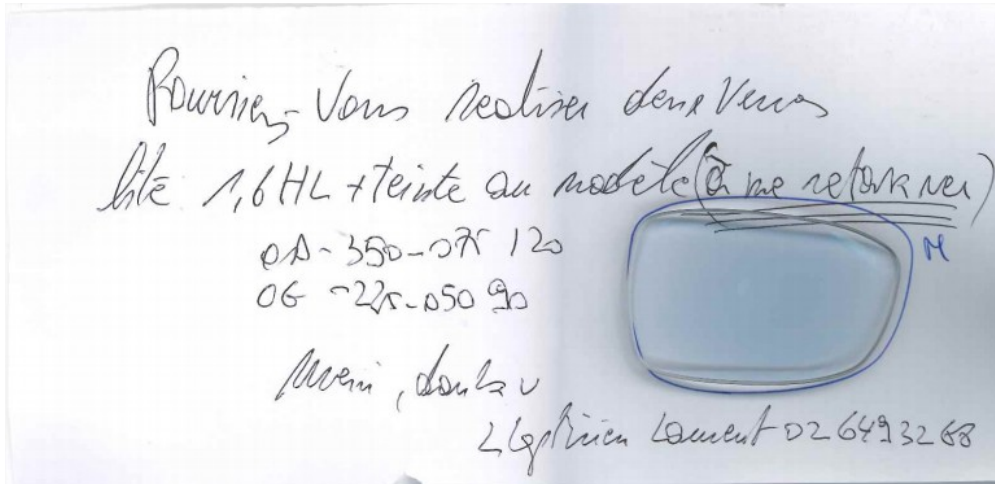 Pourriez-Vous realiser deux Verres
lité 1,6 HL + teinte au modèle (à me retourner)
OD - 350 - 075 120
OG - 225 - 050 90
M
Merci,
Laurent 02 6493268